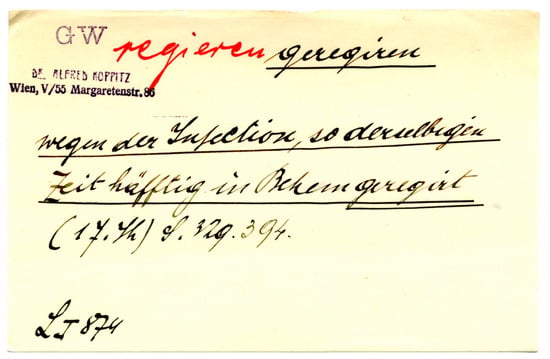 GW regieren geregiren
DR. ALFRED HOPPITZ
Wien, V/55 Margaretenstr. 86
wegen der Infection, so derselbigen
Zeit häfftig in Behem geregirt
(17. Jh) S. 329. 394.
LJ 874